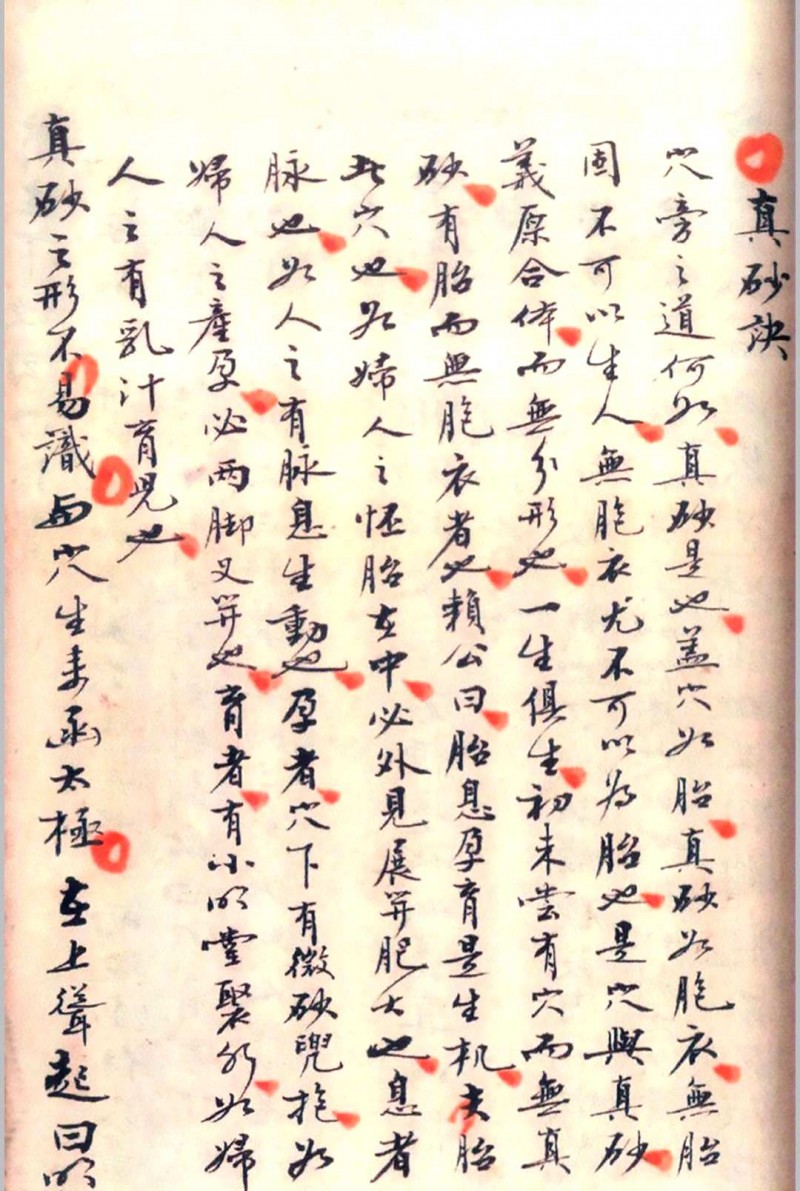 真砂訣
穴旁之道何如真砂是也蓋穴如胎真砂如胞衣無胎
固不可以生人無胞衣尤不可以為胎也是穴與真砂
義原合体而無分形也一生俱生初未嘗有穴而無真
砂有胎而無胞衣者也賴公曰胎息孕育是生机夫胎
此穴也如婦人之怀胎在中必外見展开肥大也息者
脉也如人之有脉息生動也孕者穴下有微砂兜抱如
婦人之產孕必两脚叉开也育者有小明堂聚水如婦
人之有乳汁育児也
真砂之形不易識與穴生来函太極在上聳起曰明